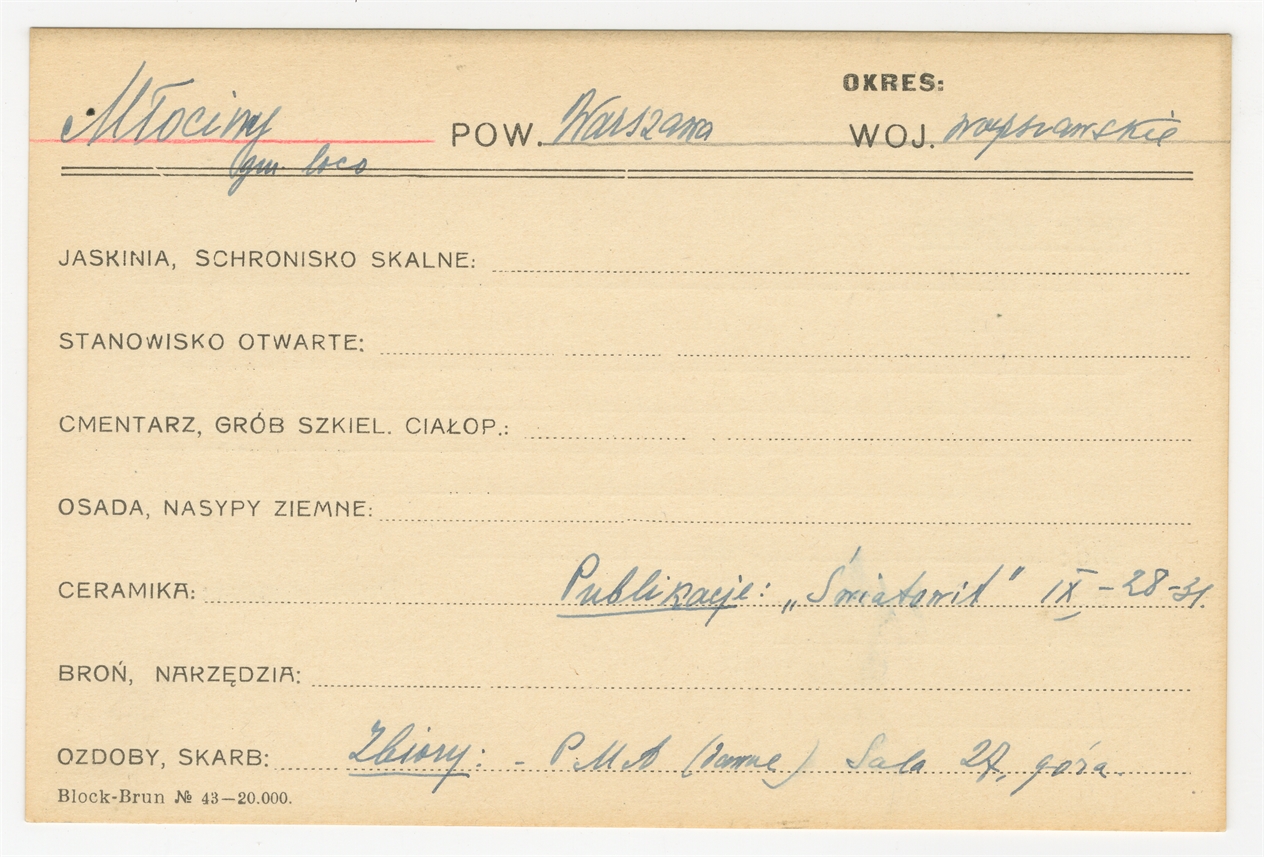 OKRES:
Młociny POW. Warszawa WOJ. warszawskie
gm. loco
JASKINIA, SCHRONISKO SKALNE:
STANOWISKO OTWARTE:
CMENTARZ, GRÓB SZKIEL. CIAŁOP.:
OSADA, NASYPY ZIEMNE:
CERAMIKA: Publikacje: „Światowit" IX - 28-31.
BROŃ, NARZĘDZIA:
OZDOBY, SKARB: Zbiory: - P.M.A Sala 27, góra.
Block-Brun № 43—20.000.